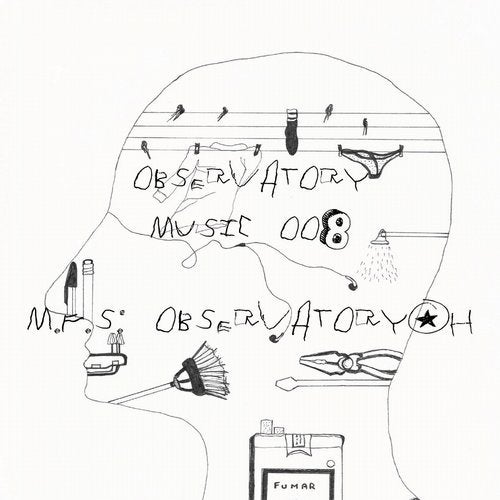 OBSERVATORY
MUSIC 008
M.F.S: OBSERVATORY★H
FUMAR